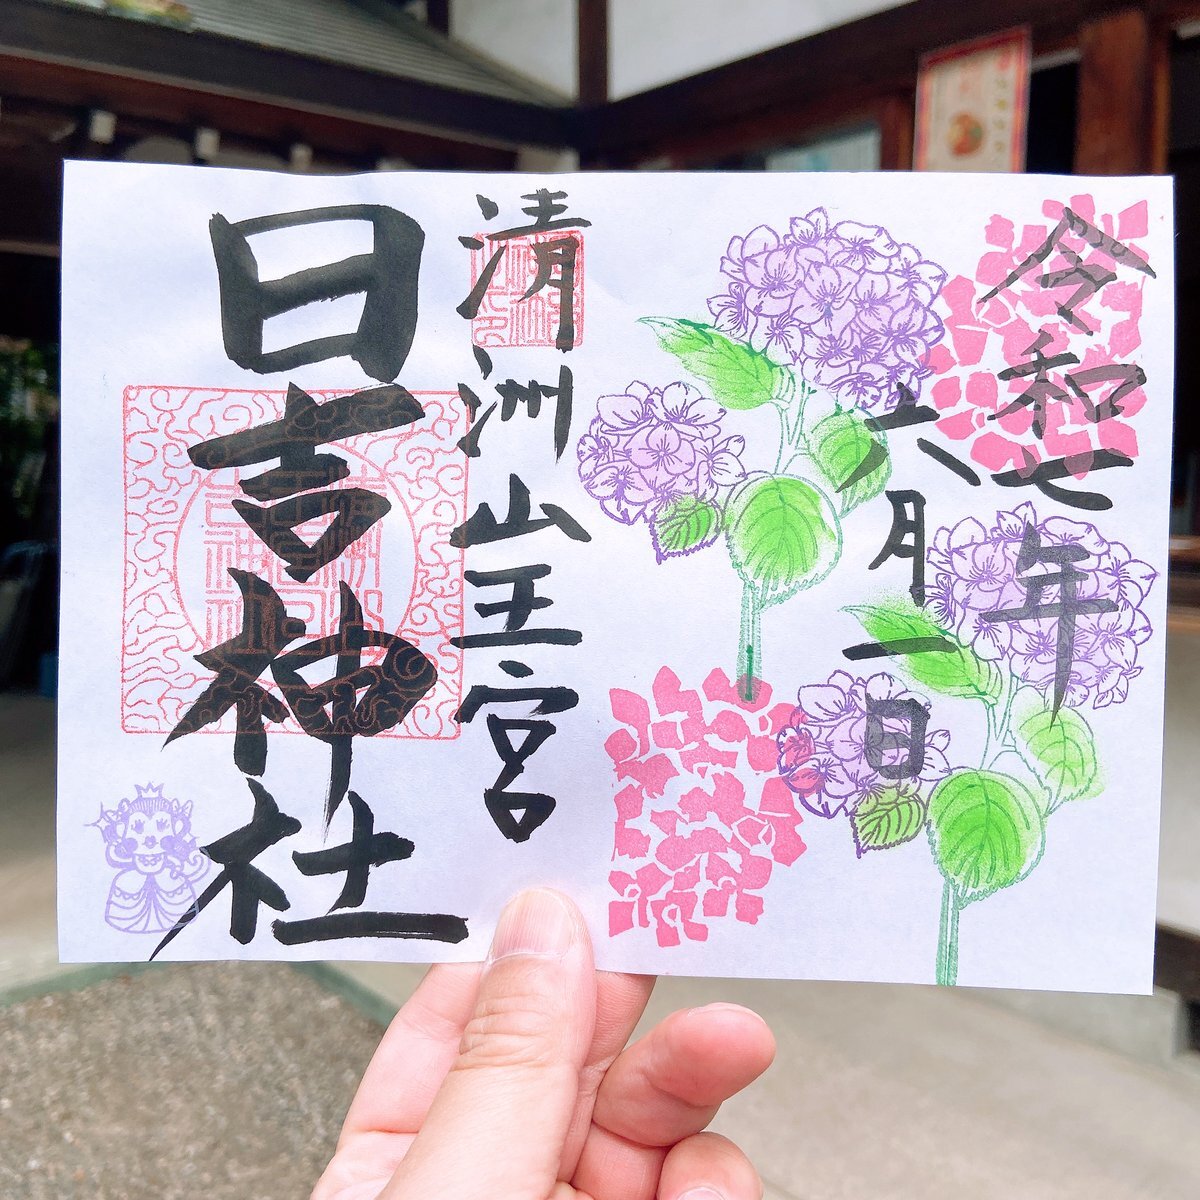 令和七年
六月一日
清洲山王宮
日吉神社